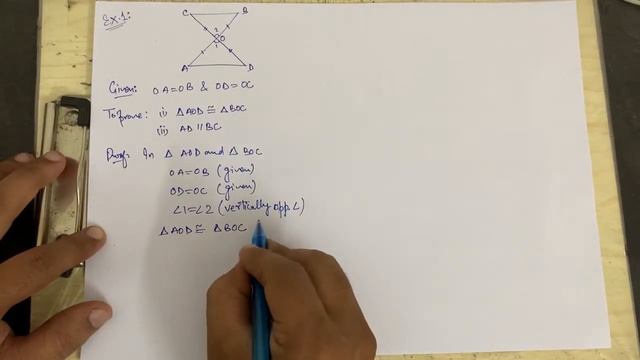 Ex.1:
C B
2
O
1
A D
Given: OA=OB & OD=OC
To prove: (i) △AOD ≅ △BOC
(ii) AD || BC
Proof: In △ AOD and △ BOC
OA=OB (given)
OD=OC (given)
∠1=∠2 (vertically opp ∠)
△AOD ≅ △BOC